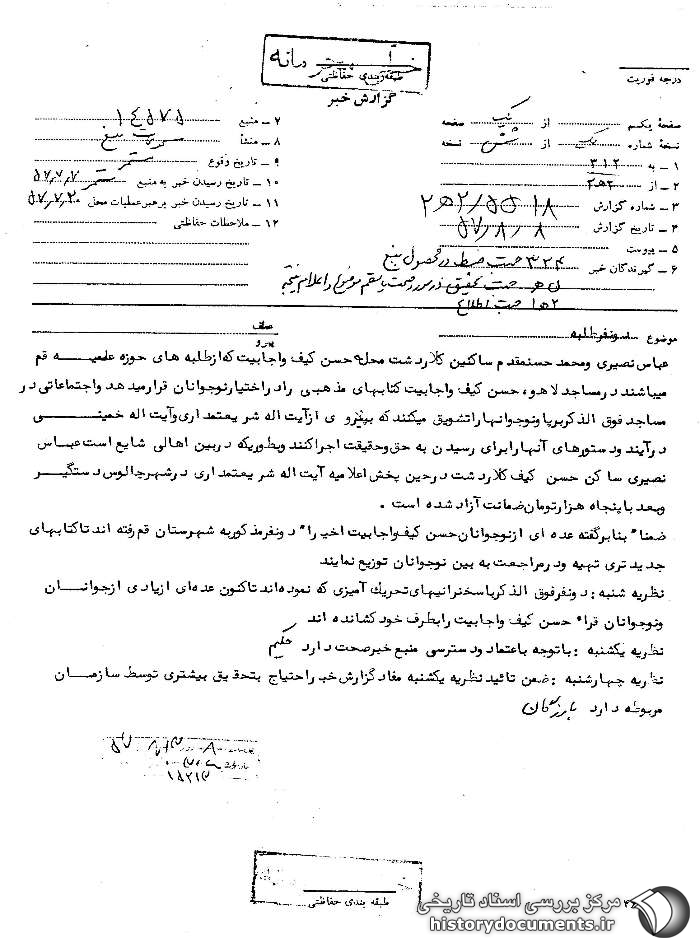 خیلی محرمانه
طبقه‌بندی حفاظتی
گزارش خبر
درجه فوریت
صفحهٔ یکم از یک صفحه
نسخهٔ شماره یک از شش نسخه
۱ ـ به ۳۱۲
۲ ـ از ۲ه۳
۳ ـ شماره گزارش
۴ ـ تاریخ گزارش ۵۷/۸/۸
۵ ـ پیوست
۶ ـ گیرندگان خبر ۳۲۴ جهت ضبط در محصول منبع
جهت تحقیق در مورد صحت یا سقم موضوع و اعلام نتیجه
جهت اطلاع
۷ ـ منبع ۱۴۵۷۵
۸ ـ منشأ
۹ ـ تاریخ وقوع مستمر
۱۰ ـ تاریخ رسیدن خبر به منبع مستمر ۵۷٫۷٫۷
۱۱ ـ تاریخ رسیدن خبر برهبر عملیات محل ۵۷٫۷٫۲۰
۱۲ ـ ملاحظات حفاظتی
موضوع دو نفر طلبه
عباس نصیری ومحمد حسنمقدم ساکنین کلاردشت محله حسن کیف واجابیت که از طلبه های حوزه علمیه قم
میباشند در مساجد لاهو، حسن کیف واجابیت کتابهای مذهبی راد راختیارنوجوانان قرارمید هد واجتماعاتی در
مساجد فوق الذکر برپا ونوجوانها را تشویق میکنند که پیرو ی از آیت اله شریعتمداری وآیت اله خمینی
در آیند ود ستورهای آنها را برای رسیدن به حق وحقیقت اجرا کنند وبطوریکه در بین اهالی شایع است عباس
نصیری ساکن حسن کیف کلاردشت در حین پخش اعلامیه آیت اله شریعتمداری در شهر چالوس دستگیر
وبعد با پنجاه هزار تومان ضمانت آزاد شده است .
ضمناً بنابرگفته عده ای از نوجوانان حسن کیف واجابیت اخیراً دو نفر مذکور به شهرستان قم رفته اند تاکتابهای
جدیدتری تهیه ودر مراجعت به بین نوجوانان توزیع نمایند
نظریه شنبه : دو نفر فوق الذکر با سخنرانیهای تحریک آمیزی که نموده اند تاکنون عده ای زیادی از جوانان
ونوجوانان قراء حسن کیف واجابیت را بطرف خود کشانده اند
نظریه یکشنبه : با توجه باعتماد ودسترسی منبع خبر صحت دارد حکیم
نظریه چهارشنبه : ضمن تائید نظریه یکشنبه مفاد گزارش خبر احتیاج بتحقیق بیشتری توسط سازمان
مربوطه دارد
طبقه بندی حفاظتی
مرکز بررسی اسناد تاریخی
historydocuments.ir